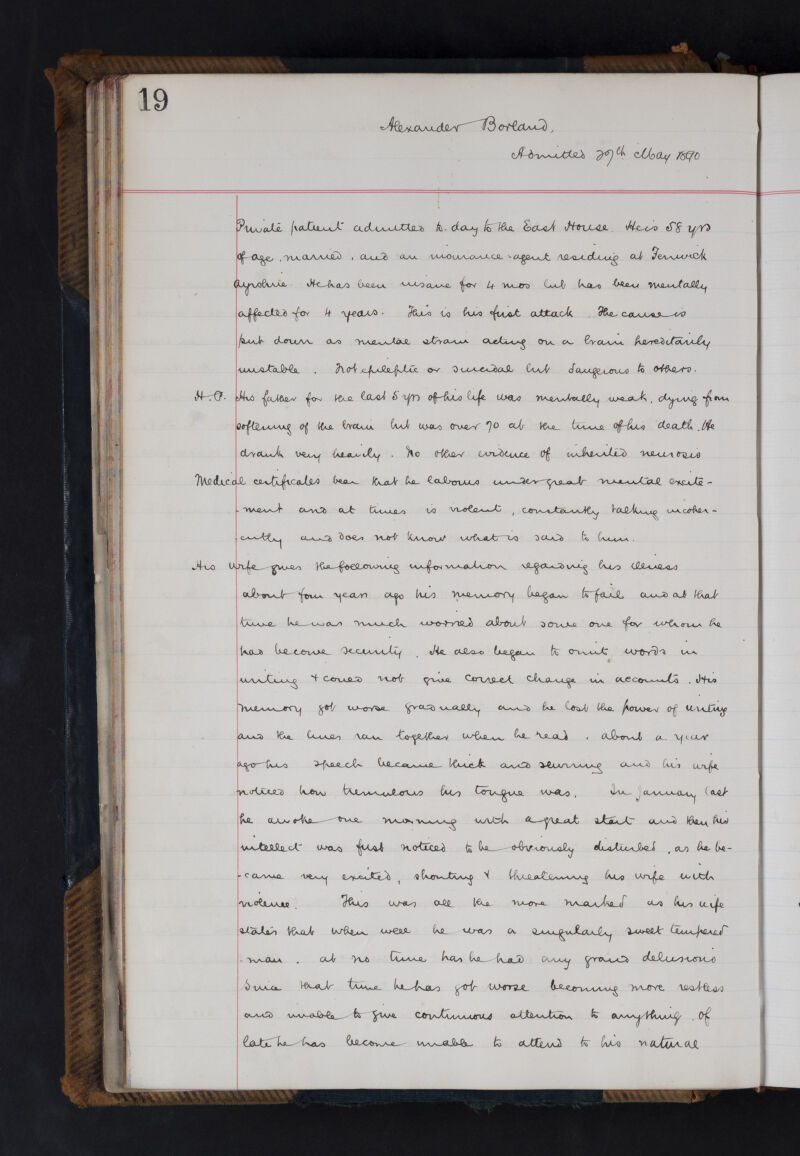 19
Alexander Borland,
Admitted 29th May 1890
Private patient admitted to-day to the East House. He is 58 yrs
of age, married, and an insurance-agent residing at Fenwick
Ayrshire. He has been insane for 4 mos but has been mentally
affected for 4 years. This is his first attack. The cause is
put down as mental strain acting on a brain hereditarily
unstable. Not epileptic or suicidal but dangerous to others.
H.P. His father for the last 5 yrs of his life was mentally weak, dying from
softening of the brain but was over 70 at the time of his death. He
drank very heavily. No other evidence of inherited neurosis
Medical certificates bear that he labours under great mental excite-
-ment and at times is violent, constantly talking incoher-
-ently and does not know what is said to him.
His wife gives the following information regarding his illness
about four years ago his memory began to fail and at that
time he was much worried about some one for whom he
had become security. He also began to omit words in
writing & could not give correct change in accounts. His
memory got worse gradually and he lost the power of writing
and the lines ran together when he read. about a year
ago his speech became thick and slurring and his wife
noticed how tremulous his tongue was. In January last
he awoke one morning with a great start and then his
intellect was first noticed to be obviously disturbed, as he be-
-came very excited, shouting & threatening his wife with
violence. This was all the more marked as his wife
states that when well he was a singularly sweet tempered
man. at no time has he had any grand delusions
Since that time he has got worse becoming more restless
and unable to give continuous attention to anything. Of
late he has become unable to attend to his natural